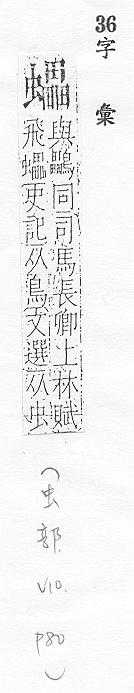 36字 彙
蠝
與鸓同司馬長卿上林賦
飛蠝史記从鳥文選从虫
(虫部. V10. P80)